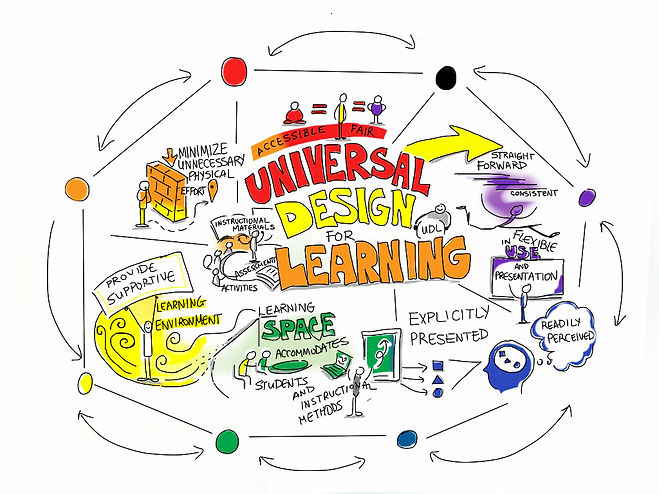 ACCESSIBLE FAIR
UNIVERSAL
DESIGN
FOR
LEARNING
UDL
MINIMIZE
UNNECESSARY
PHYSICAL
EFFORT
STRAIGHT
FORWARD
CONSISTENT
FLEXIBLE
IN
USE
AND
PRESENTATION
INSTRUCTIONAL
MATERIALS
ASSESSMENTS
ACTIVITIES
PROVIDE
SUPPORTIVE
LEARNING
ENVIRONMENT
LEARNING
SPACE
ACCOMMODATES
STUDENTS
AND
INSTRUCTIONAL
METHODS
EXPLICITLY
PRESENTED
READILY
PERCEIVED